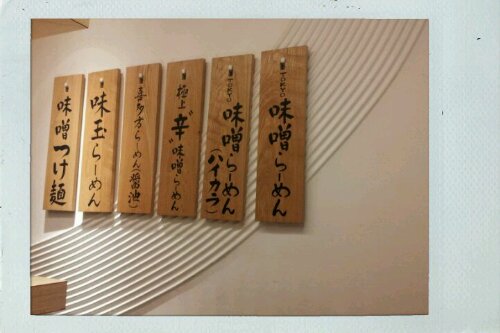 TOKYO
味噌らーめん
TOKYO
味噌らーめん
(ハイカラ)
極上
辛味噌らーめん
喜多方らーめん(醤油)
味玉らーめん
味噌つけ麺